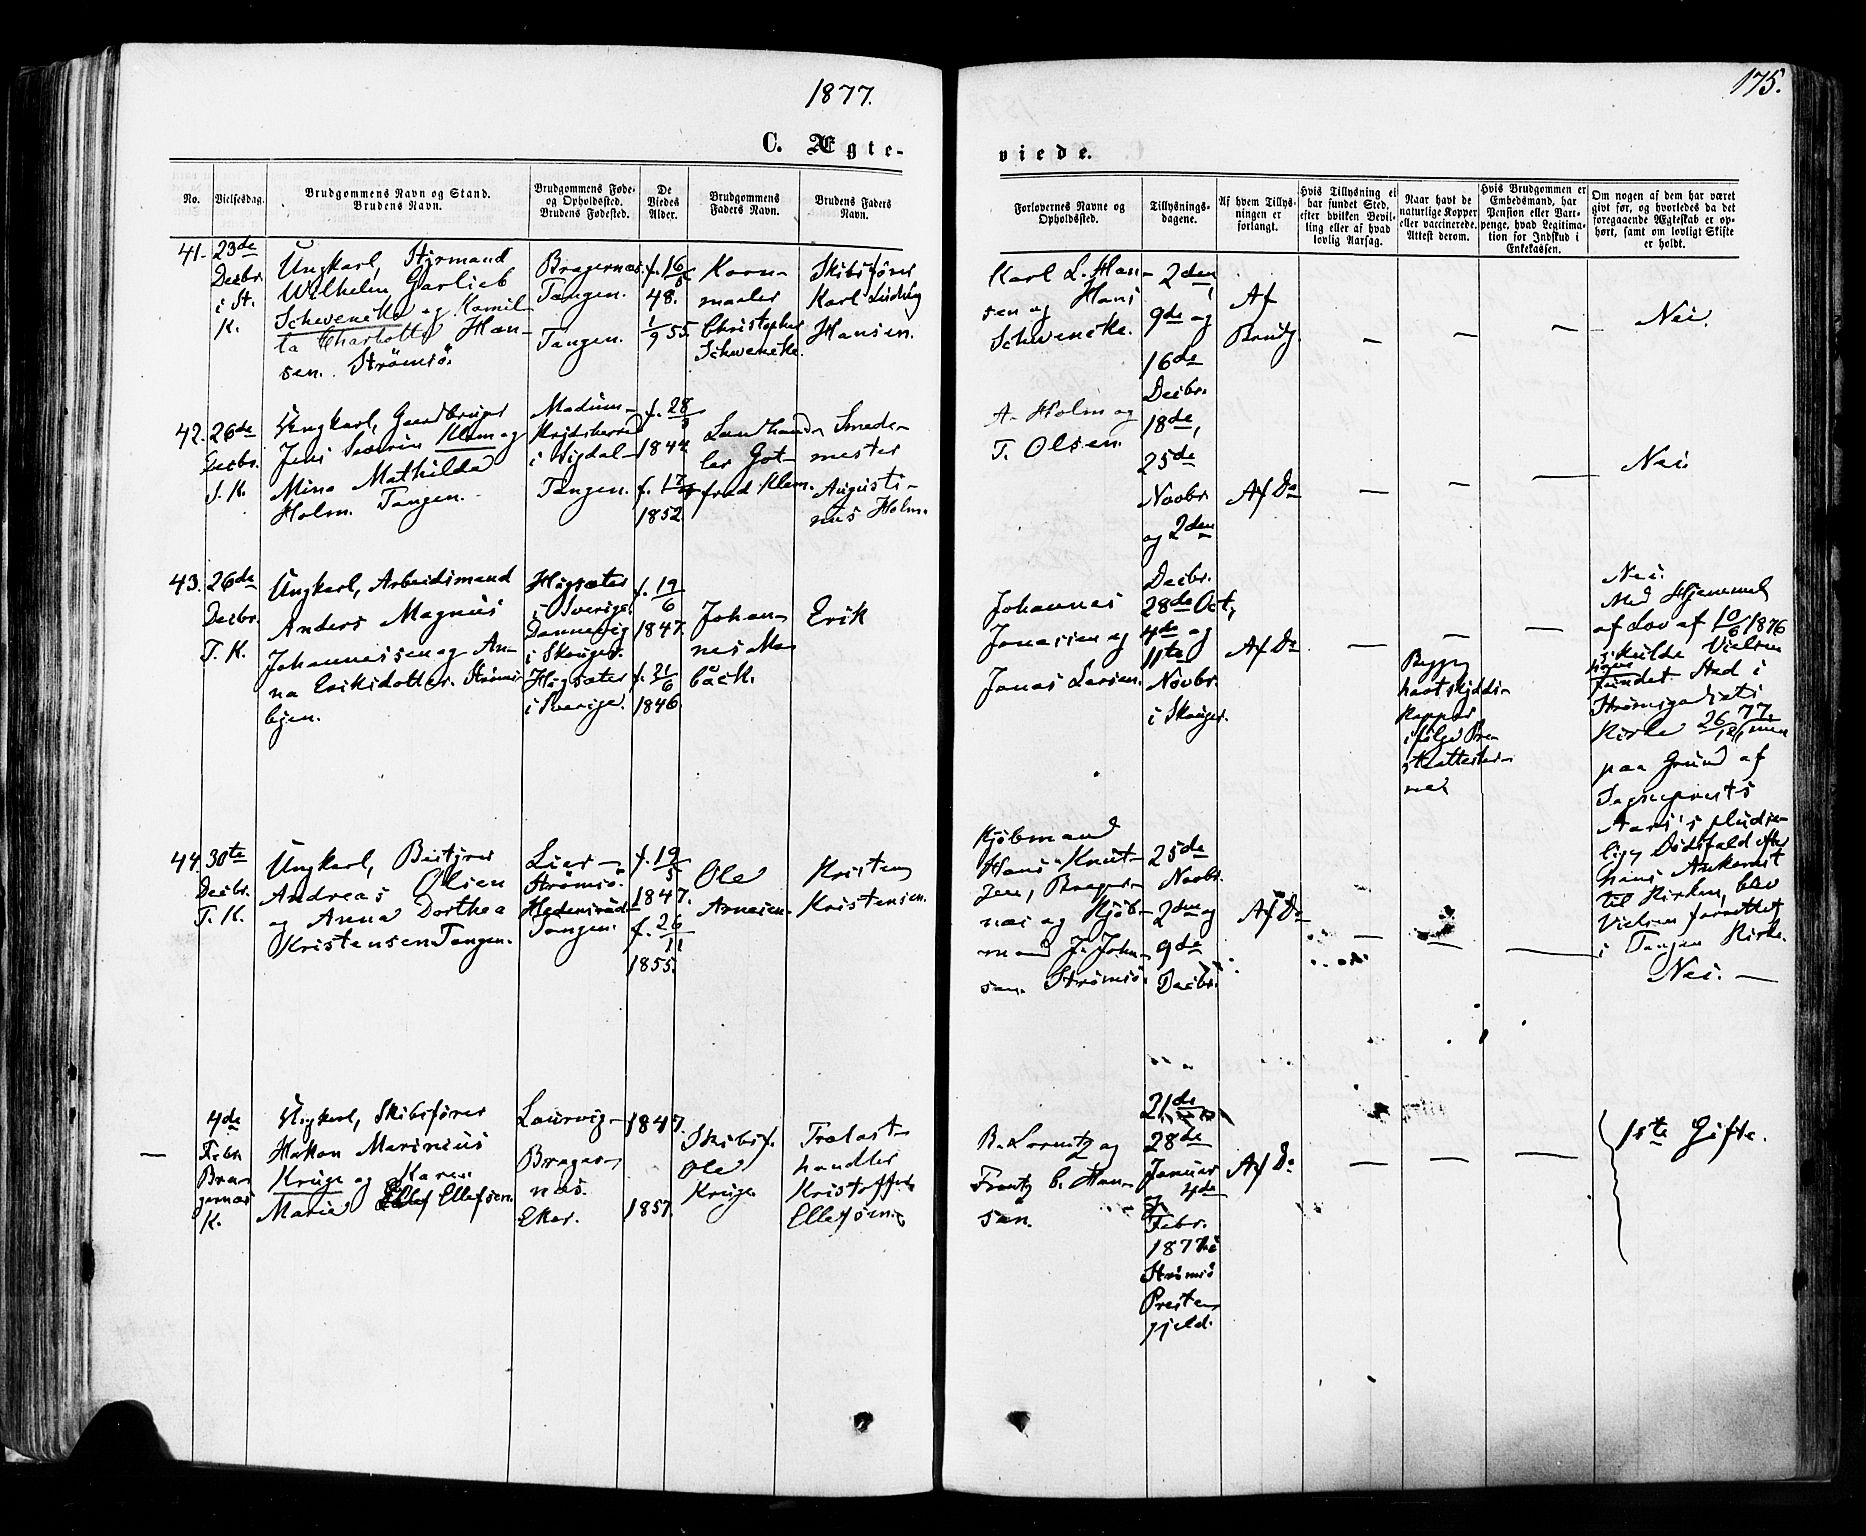 1877.
175.
C. Ægte-
viede.
No.
Vielsesdag.
Brudgommens Navn og Stand.
Brudens Navn.
Brudgommens Føde-
og Opholdssted.
Brudens Fødested.
De
Viedes
Alder.
Brudgommens
Faders Navn.
Brudens Faders
Navn.
Forlovernes Navne og
Opholdssted.
Tillysnings-
dagene.
Af hvem Tillys-
ningen er
forlangt.
Hvis Tillysning ei
har fundet Sted,
efter hvilken Bevil-
ling eller af hvad
lovlig Aarsag.
Naar havt de
naturlige Kopper
eller vaccinerede.
Attest derom.
Hvis Brudgommen er
Embedsmand, har
Pension eller Vart-
penge, hvad Legitima-
tion for Indskud i
Enkekassen.
Om nogen af dem har været
gift før, og hvorledes da det
foregaaende Ægteskab er op-
hørt, samt om lovligt Skifte
er holdt.
41.
23de
Decbr.
i St.
K.
Ungkarl, Styrmand
Wilhelm Garlieb
Schwencke og Kamil-
la Charlotte Han-
sen. Strømsö.
Bragernæs.
Tangen.
Tangen.
f. 16/5
48.
1/9 55.
Korn-
maaler
Christopher
Schwencke.
Skibsfører
Karl Ludvig
Hansen.
Karl L. Han-
sen og Hans
Schwencke.
2den,
9de og
16de
Decbr.
Af
Brudg.
—
—
—
Nei.
42.
26de
Decbr.
T. K.
Ungkarl, Gaardbruger
Jens Severin Klem og
Mina Mathilda
Holm. Tangen.
i Sigdal-
Tangen.
f. 28
1844
f. 17
1852.
Landhand-
ler Got-
fred Klem.
Smede-
mester
Augusti-
nus Holm.
A. Holm og
T. Olsen.
18de,
25de
Novbr.
og 2den
Decbr.
Af Do
—
—
—
Nei.
43.
26de
Decbr.
T. K.
Ungkarl, Arbeidsmand
Anders Magnus
Johannessen og An-
na Eriksdotter. Strømsö-
byen.
Högsæter
i Sverige.
Dannevig
i Skouger.
Högsæter
i Sverige.
f. 19/6
1847.
f. 21/6
1846.
Johan-
nes
bäck.
Erik
Johannes
Jonassen og
Jonas Larsen.
28de Oct,
4de og
11te
Novbr.
i Skouger.
Af Do
—
Begge
havt
Kopper
ifølge Præ-
steattester-
ne.
—
Nei.
Med Hjemmel
af Lov af 10/6 1876
skulde Vielsen
fundet Sted i
Strømsgodsets
Kirke 26/12 77. men
paa Grund af
Sognepræsts
pludse-
lige Dødsfald efter
hans Ankomst
til Kirken, blev
Vielsen forrettet
i Tangen Kirke.
44.
30te
Decbr.
T. K.
Ungkarl, Bestyrer
Andreas Olsen
og Anna Dorthea
Kristensen Tangen.
Lier-
Strømsö.
Tangen.
f. 19/5
1847.
f. 26/11
1855.
Ole
Arnesen.
Kristen
Kristensen.
Kjøbmand
Hans Knut-
zen, Brager-
næs og Kjøb-
mand J. John-
sen. Strømsö.
25de
Novbr.
2den og
9de
Decbr.
Af Do
—
—
—
Nei. —
—
4de
Febr.
Bra-
gernæs
K.
Ungkarl, Skibsfører
Hakon Marinius
Kruge og Karen
Maria Ellefsen.
Laurvig-
Brager-
næs.
Eker.
1847.
1857.
Skibsf.
Ole
Kruge
Trælast-
handler
Kristoffer
Ellefsen.
B. Lorentz og
Frantz C. Han-
sen.
21de
28de
Januar
4de
Febr.
1877 i
Strømsö
Præste-
gjeld.
Af Do
—
—
—
1ste Gifte.